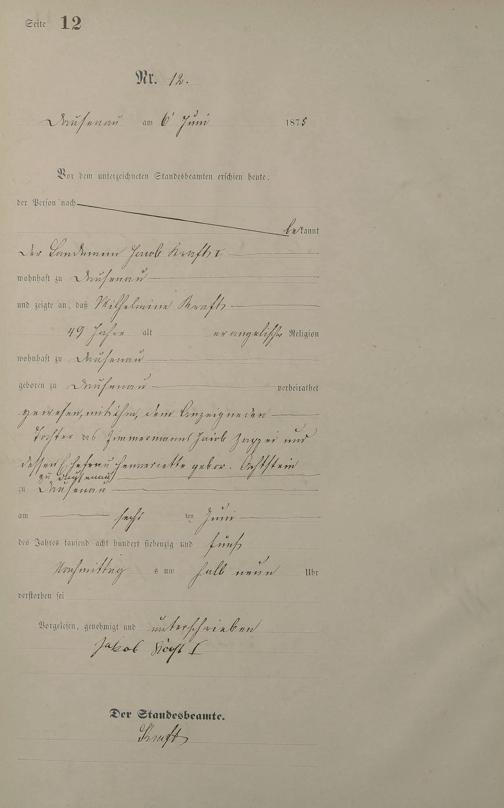 Seite 12
Nr. 12.
Dausenau am 6 Juni 1875
Vor dem unterzeichneten Standesbeamten erschien heute,
der Person nach
bekannt
der Landmann Jacob Kraft I
wohnhaft zu Dausenau
und zeigte an, daß Wilhelmine Kraft
49 Jahre alt evangelischer Religion
wohnhaft zu Dausenau
geboren zu Dausenau verheirathet
gewesen mit ihm, dem Anzeigenden
Tochter des Zimmermanns Jacob und
dessen Ehefrau Henneriette gebor.
zu Dausenau
zu Dausenau
am sechs ten Juni
des Jahres tausend acht hundert siebenzig und fünf
mittag s um halb neun Uhr
verstorben sei
Vorgelesen, genehmigt und unterschrieben
Jakob I
Der Standesbeamte.
Kraft